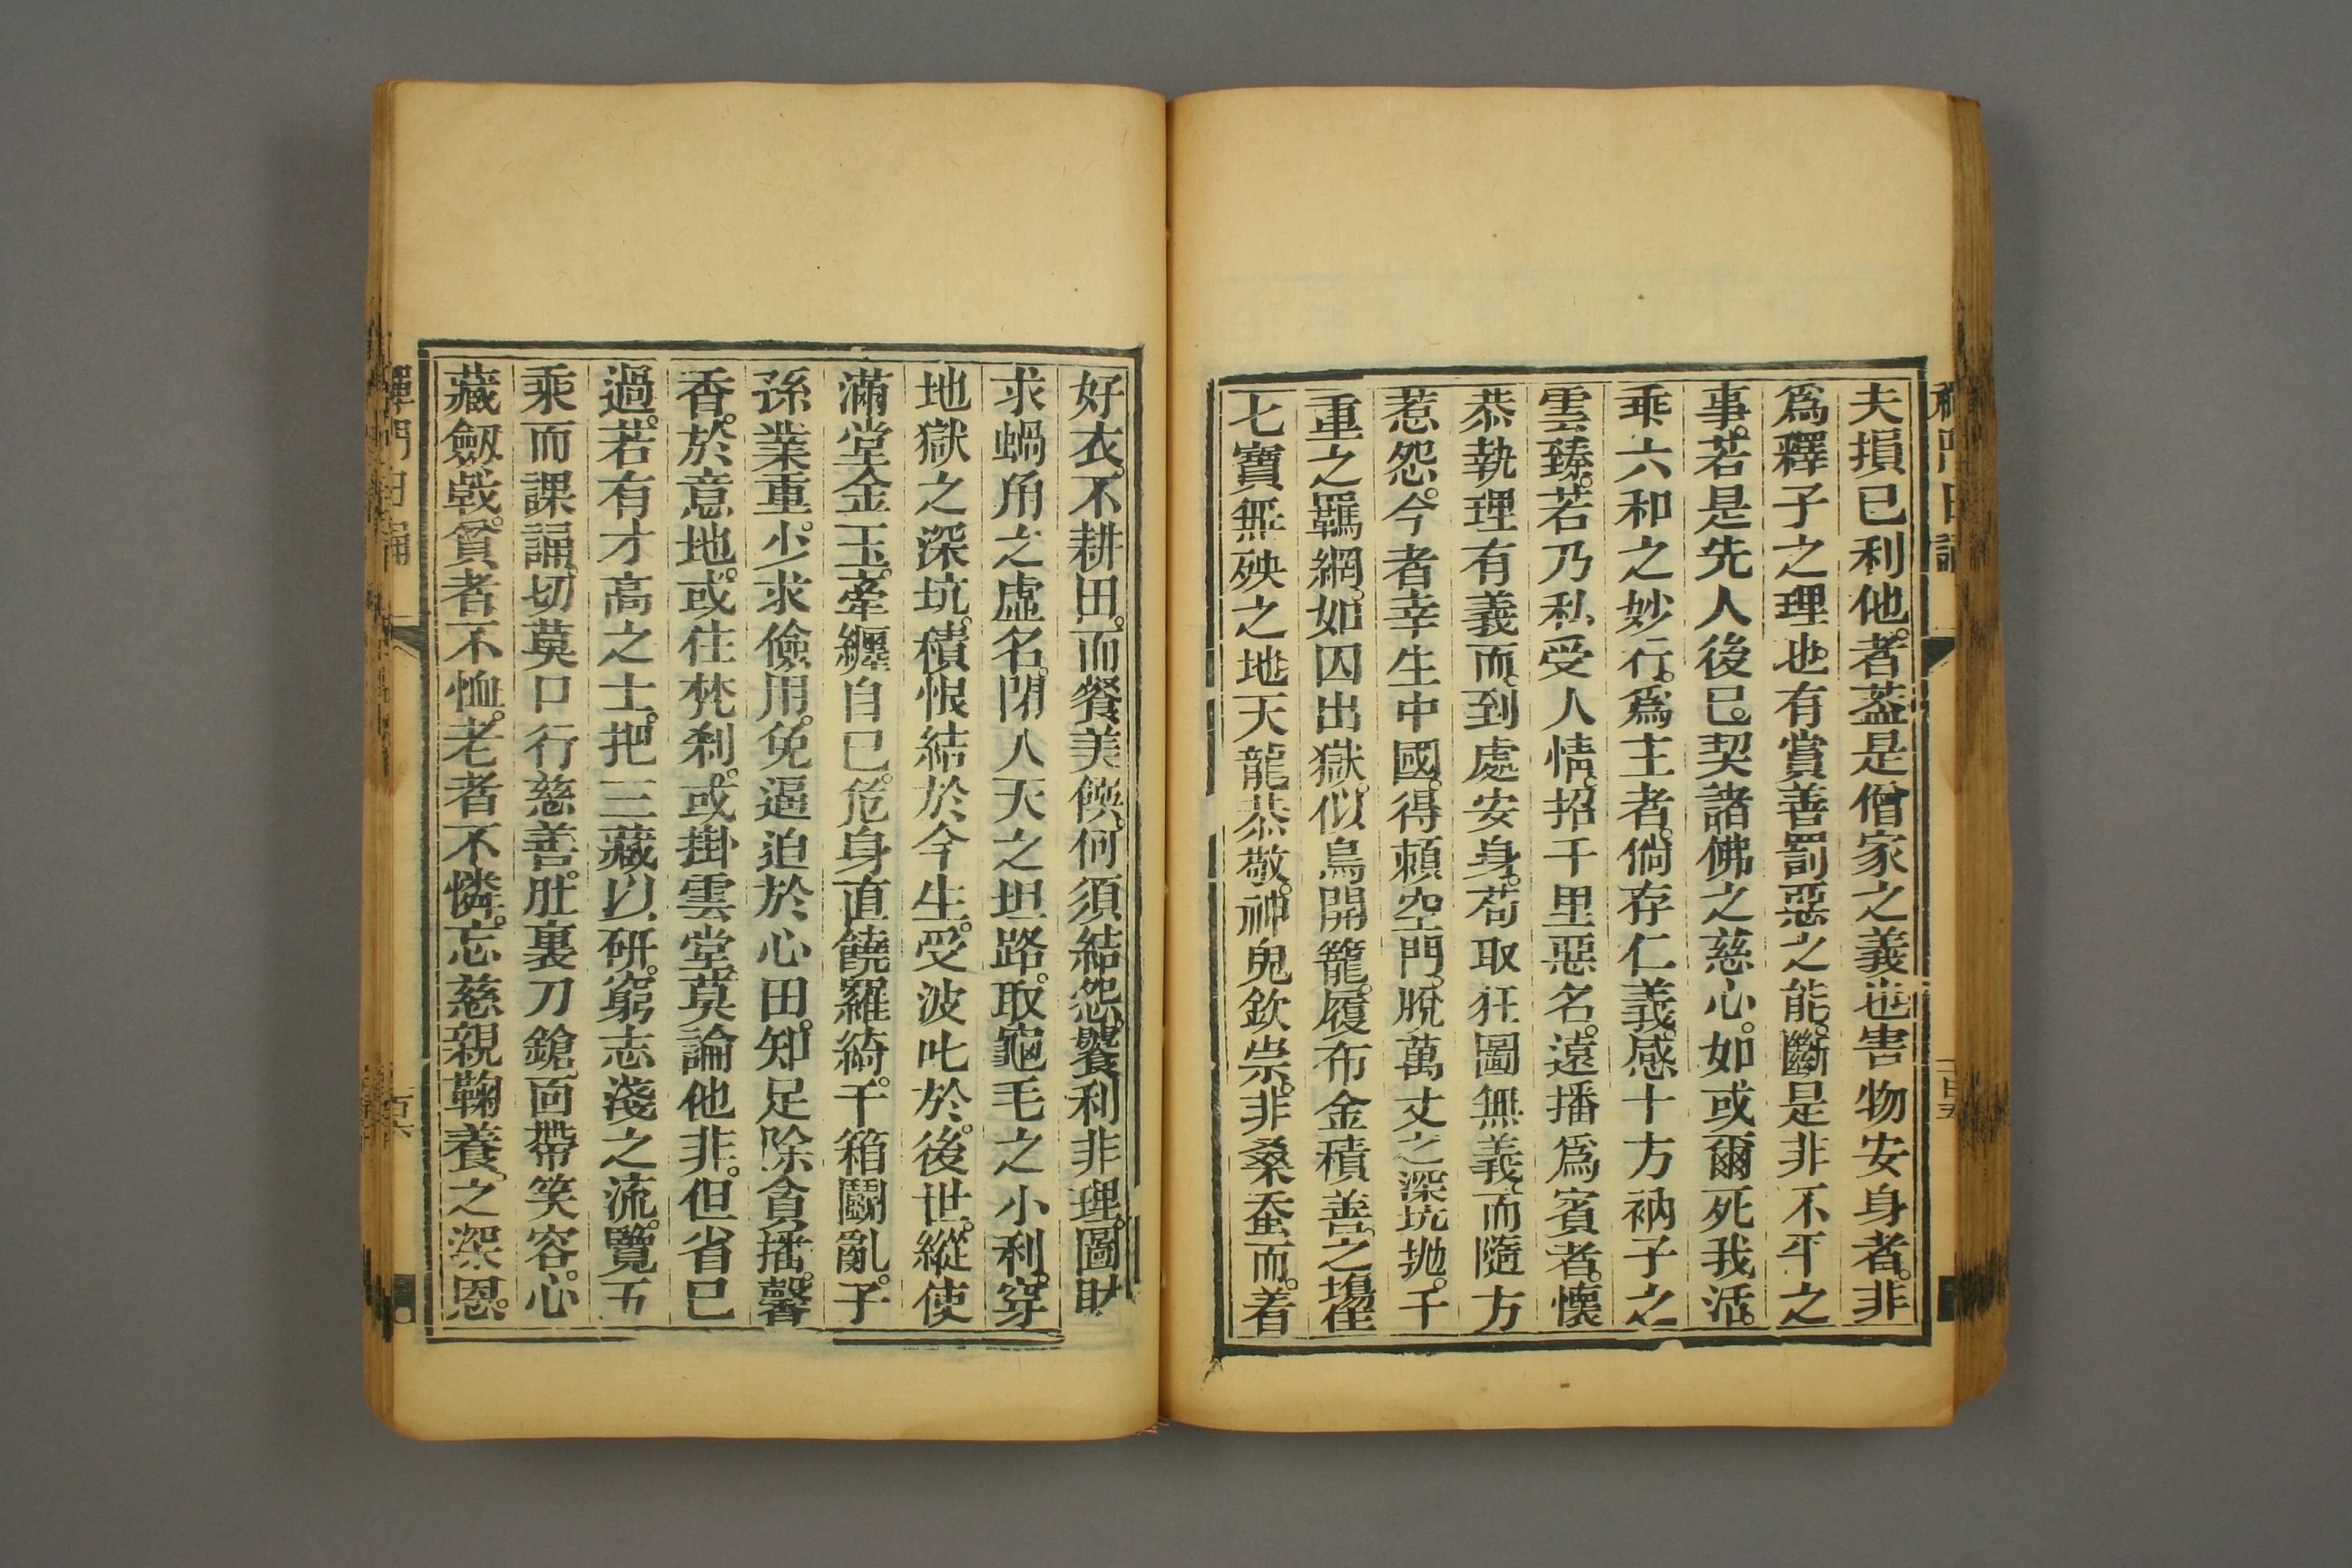 夫損已利他。者葢是僧家之義也害物安身者。非
爲釋子之理也。有賞善罰惡之能。斷是非不平之
事。若是先人後已。契諸佛之慈心。如或爾死我活。
乘六和之妙行。爲主者。倘存仁義。感十方衲子之
雲臻。若乃私受人情。招千里惡名。遠播爲賓者。懷
恭執理有義而。到處安身。苟取狂圖無義。而隨方
惹怨。今者幸生中國。得頼空門。脫萬丈之深坑抛。千
重之羈網。如囚出獄。似鳥開籠。履布金積善。之塲住
七寶無殃之地天龍恭敬。神鬼欽祟。非桑蚕而。着
好衣。不耕田。而餐美饌。何須結怨。饕利非理。圖財
求蝸角之虛名。閉人天之坦路。取龜毛之小利。穿
地獄之深坑。積恨結於今生。受波叱於。後世。縱使
滿堂金玉。牽纏自已。危身直饒羅綺。千箱鬭亂。子
孫業重。少求儉用。免逼迫於心田。知足除貪。播。馨
香。於意地。或住梵剎。或掛雲堂。莫論他非。但省已
過。若有才高之士。把三藏以研。窮志淺之流。覽五
乘而課誦。切莫口行慈善。肚裏刀鎗。面帶笑容。心
藏劔戟。貧者不恤。老者不憐。忘慈親鞠養。之深恩。
禪門日誦
百六